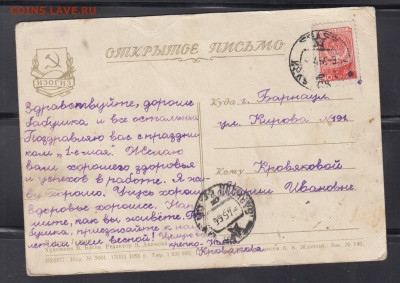 COINS.LAVE.RU
ОТКРЫТОЕ ПИСЬМО
ИЗОГИЗ
Здравствуйте, дорогие
бабушка и все остальные
Поздравляю вас с праздни
ком "1-е мая". Желаю
вам хорошего здоровья
и успехов в работе. Я жи
ву хорошо. Учусь хорошо
Здоровье хорошее. Напи
шите, как вы живёте. Ба
бушка, приезжайте к нам
летом или весной! Целую
крепко.
Кровякова.
Куда г. Барнаул
ул. Кирова № 191
Кому Кровяковой
Марии Ивановне